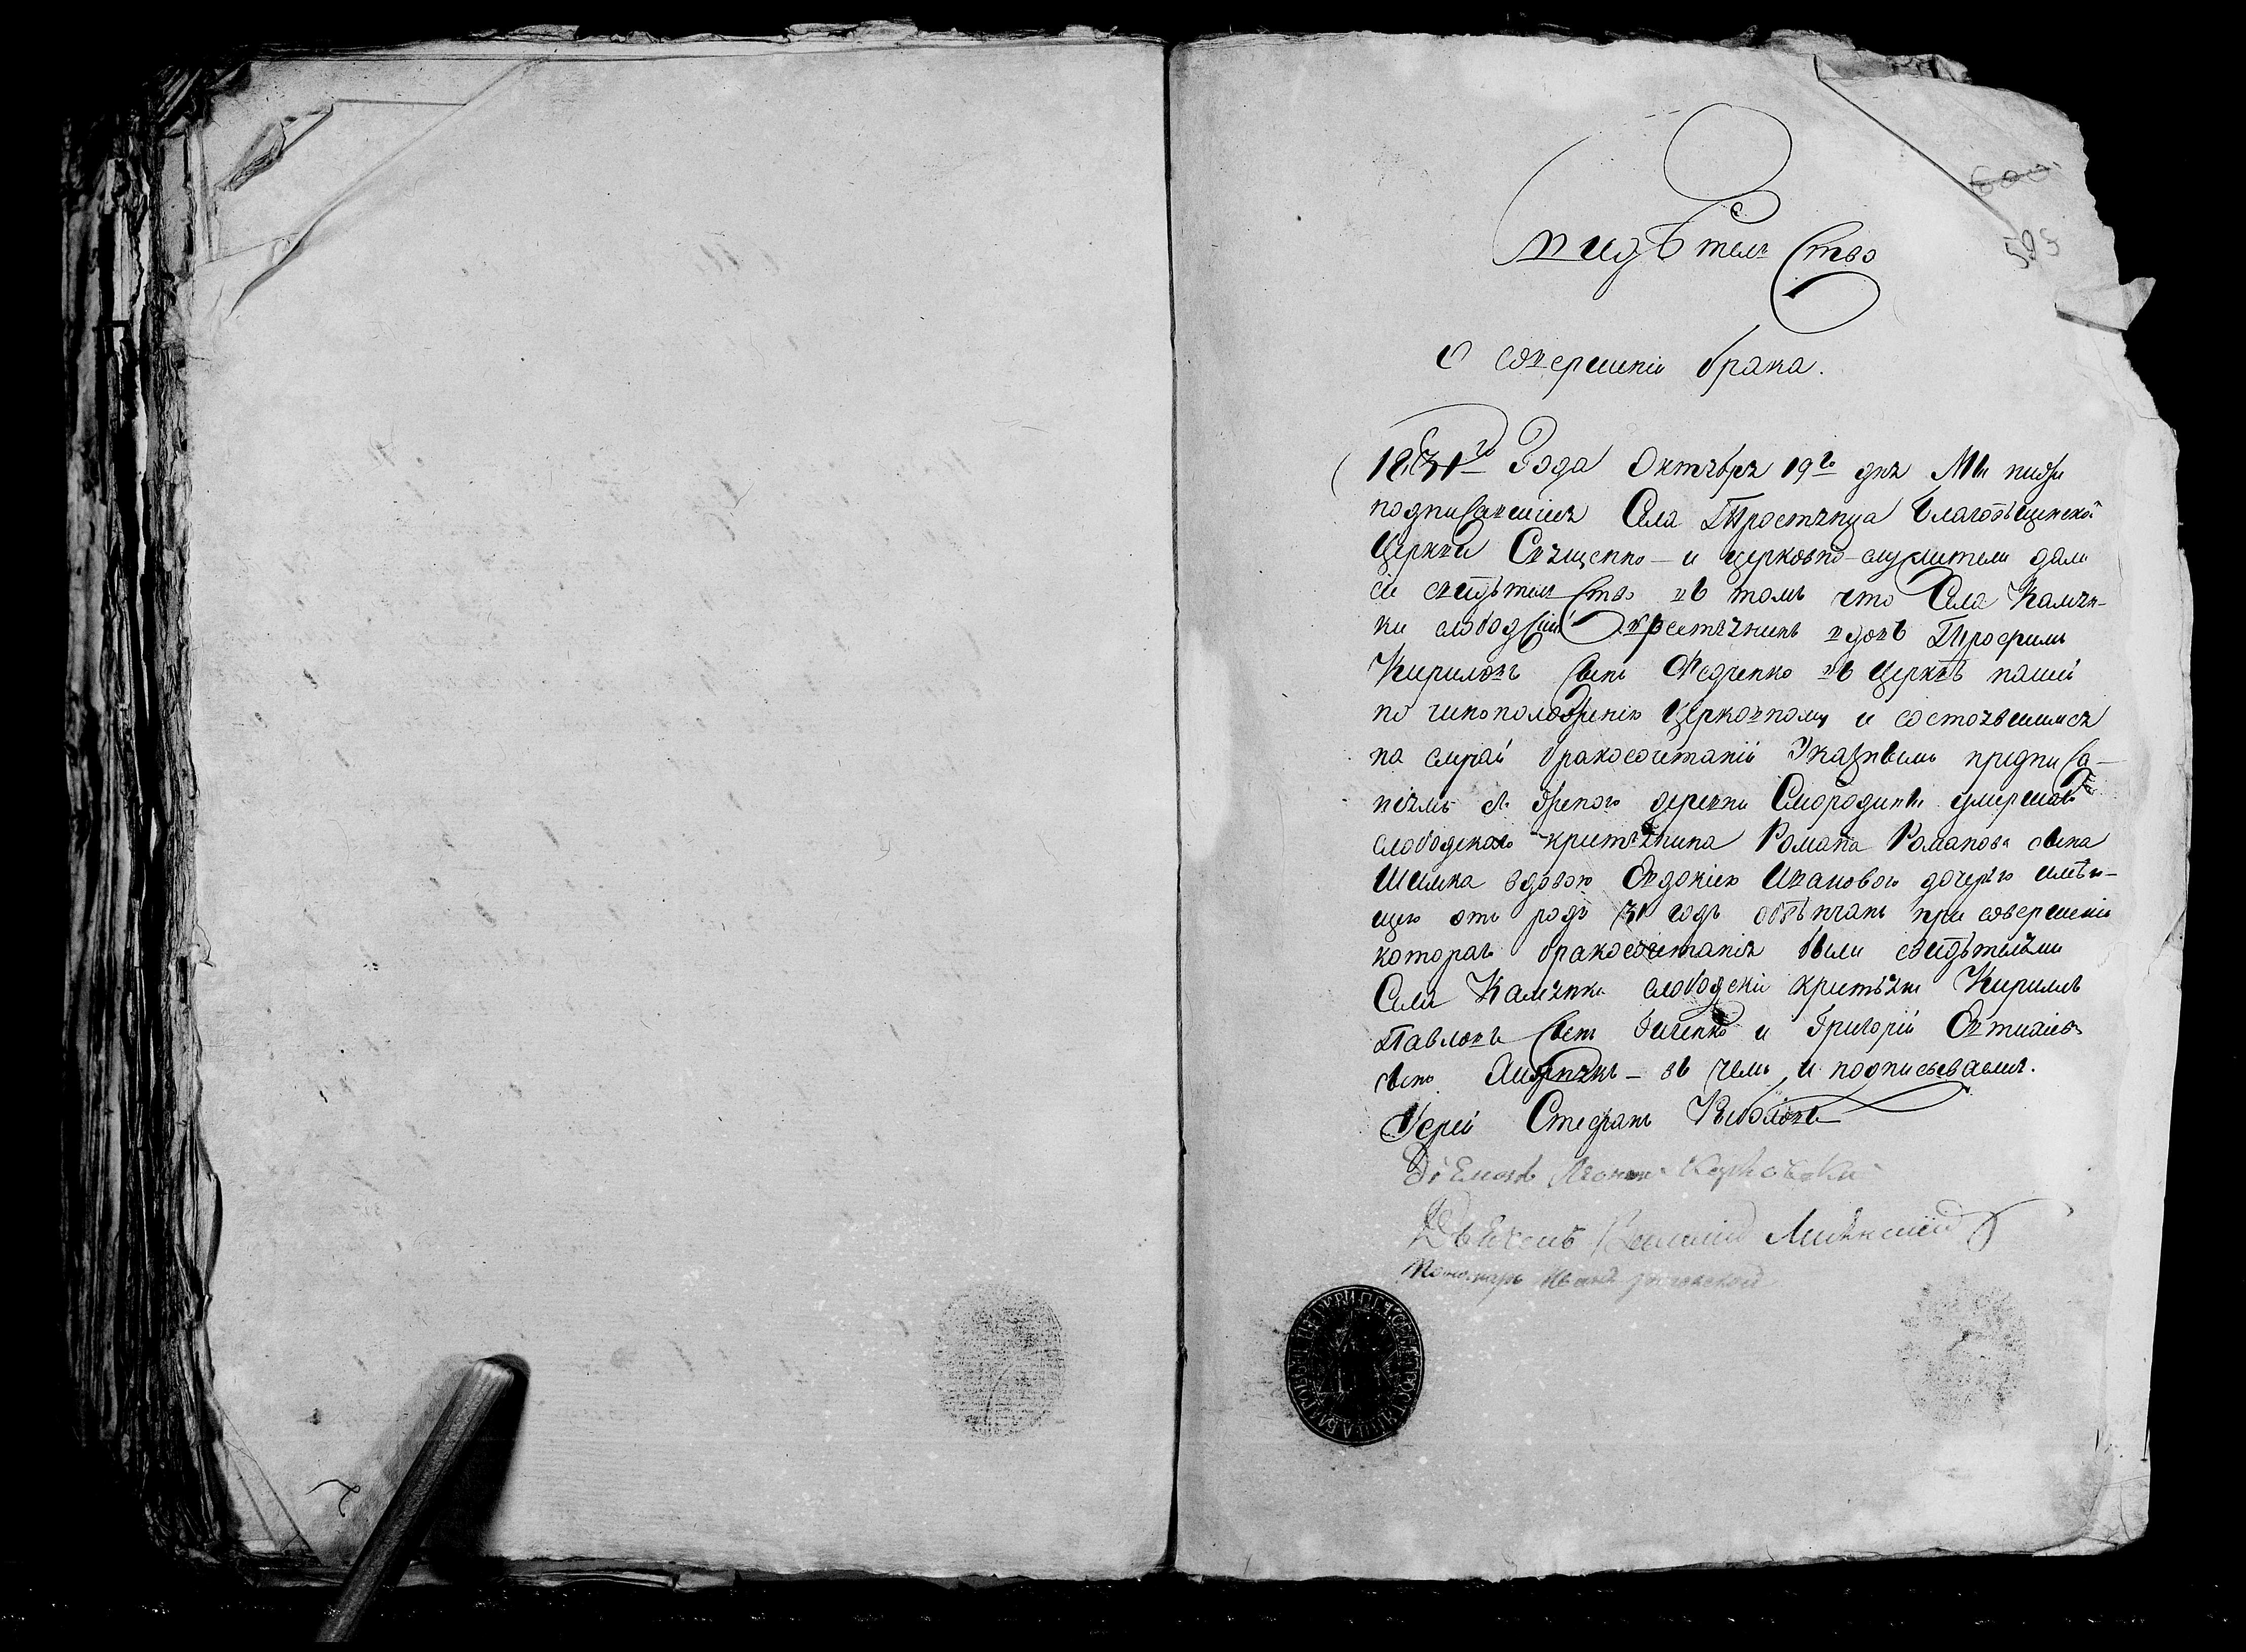 600
595
Свидѣтельство
О совершеніи брака.
1831го Года Октября 19го дня Мы ниже
подписавшіися Села Тростянца Благовѣщенской
Церкви Священно- и церковно-служители дали
сіе свидѣтельство въ томъ что Села Камян-
ки слободскій крестьянинъ вдовъ Трофимъ
Кириловъ сынъ Федченко въ Церквѣ нашей
по чиноположенію Церковному и состоявшимся
на случай бракосочетаній Указнымъ предписа-
ніямъ съ деревни Смородины умершаго
слободскаго крестьянина Романа Романова сына
Шимка вдовою Евдокіею Ивановою дочерью имѣю-
щею отъ роду 31 годъ обвѣнчанъ при совершеніи
котораго бракосочетанія были свидѣтелями
Села Камянки слободскіи крестьяне Кирилъ
Павловъ сынъ и Григорій
сынъ въ чемъ и подписываемся.
Іерей Стефанъ
Діаконъ
Дьячекъ
Пономарь Иванъ